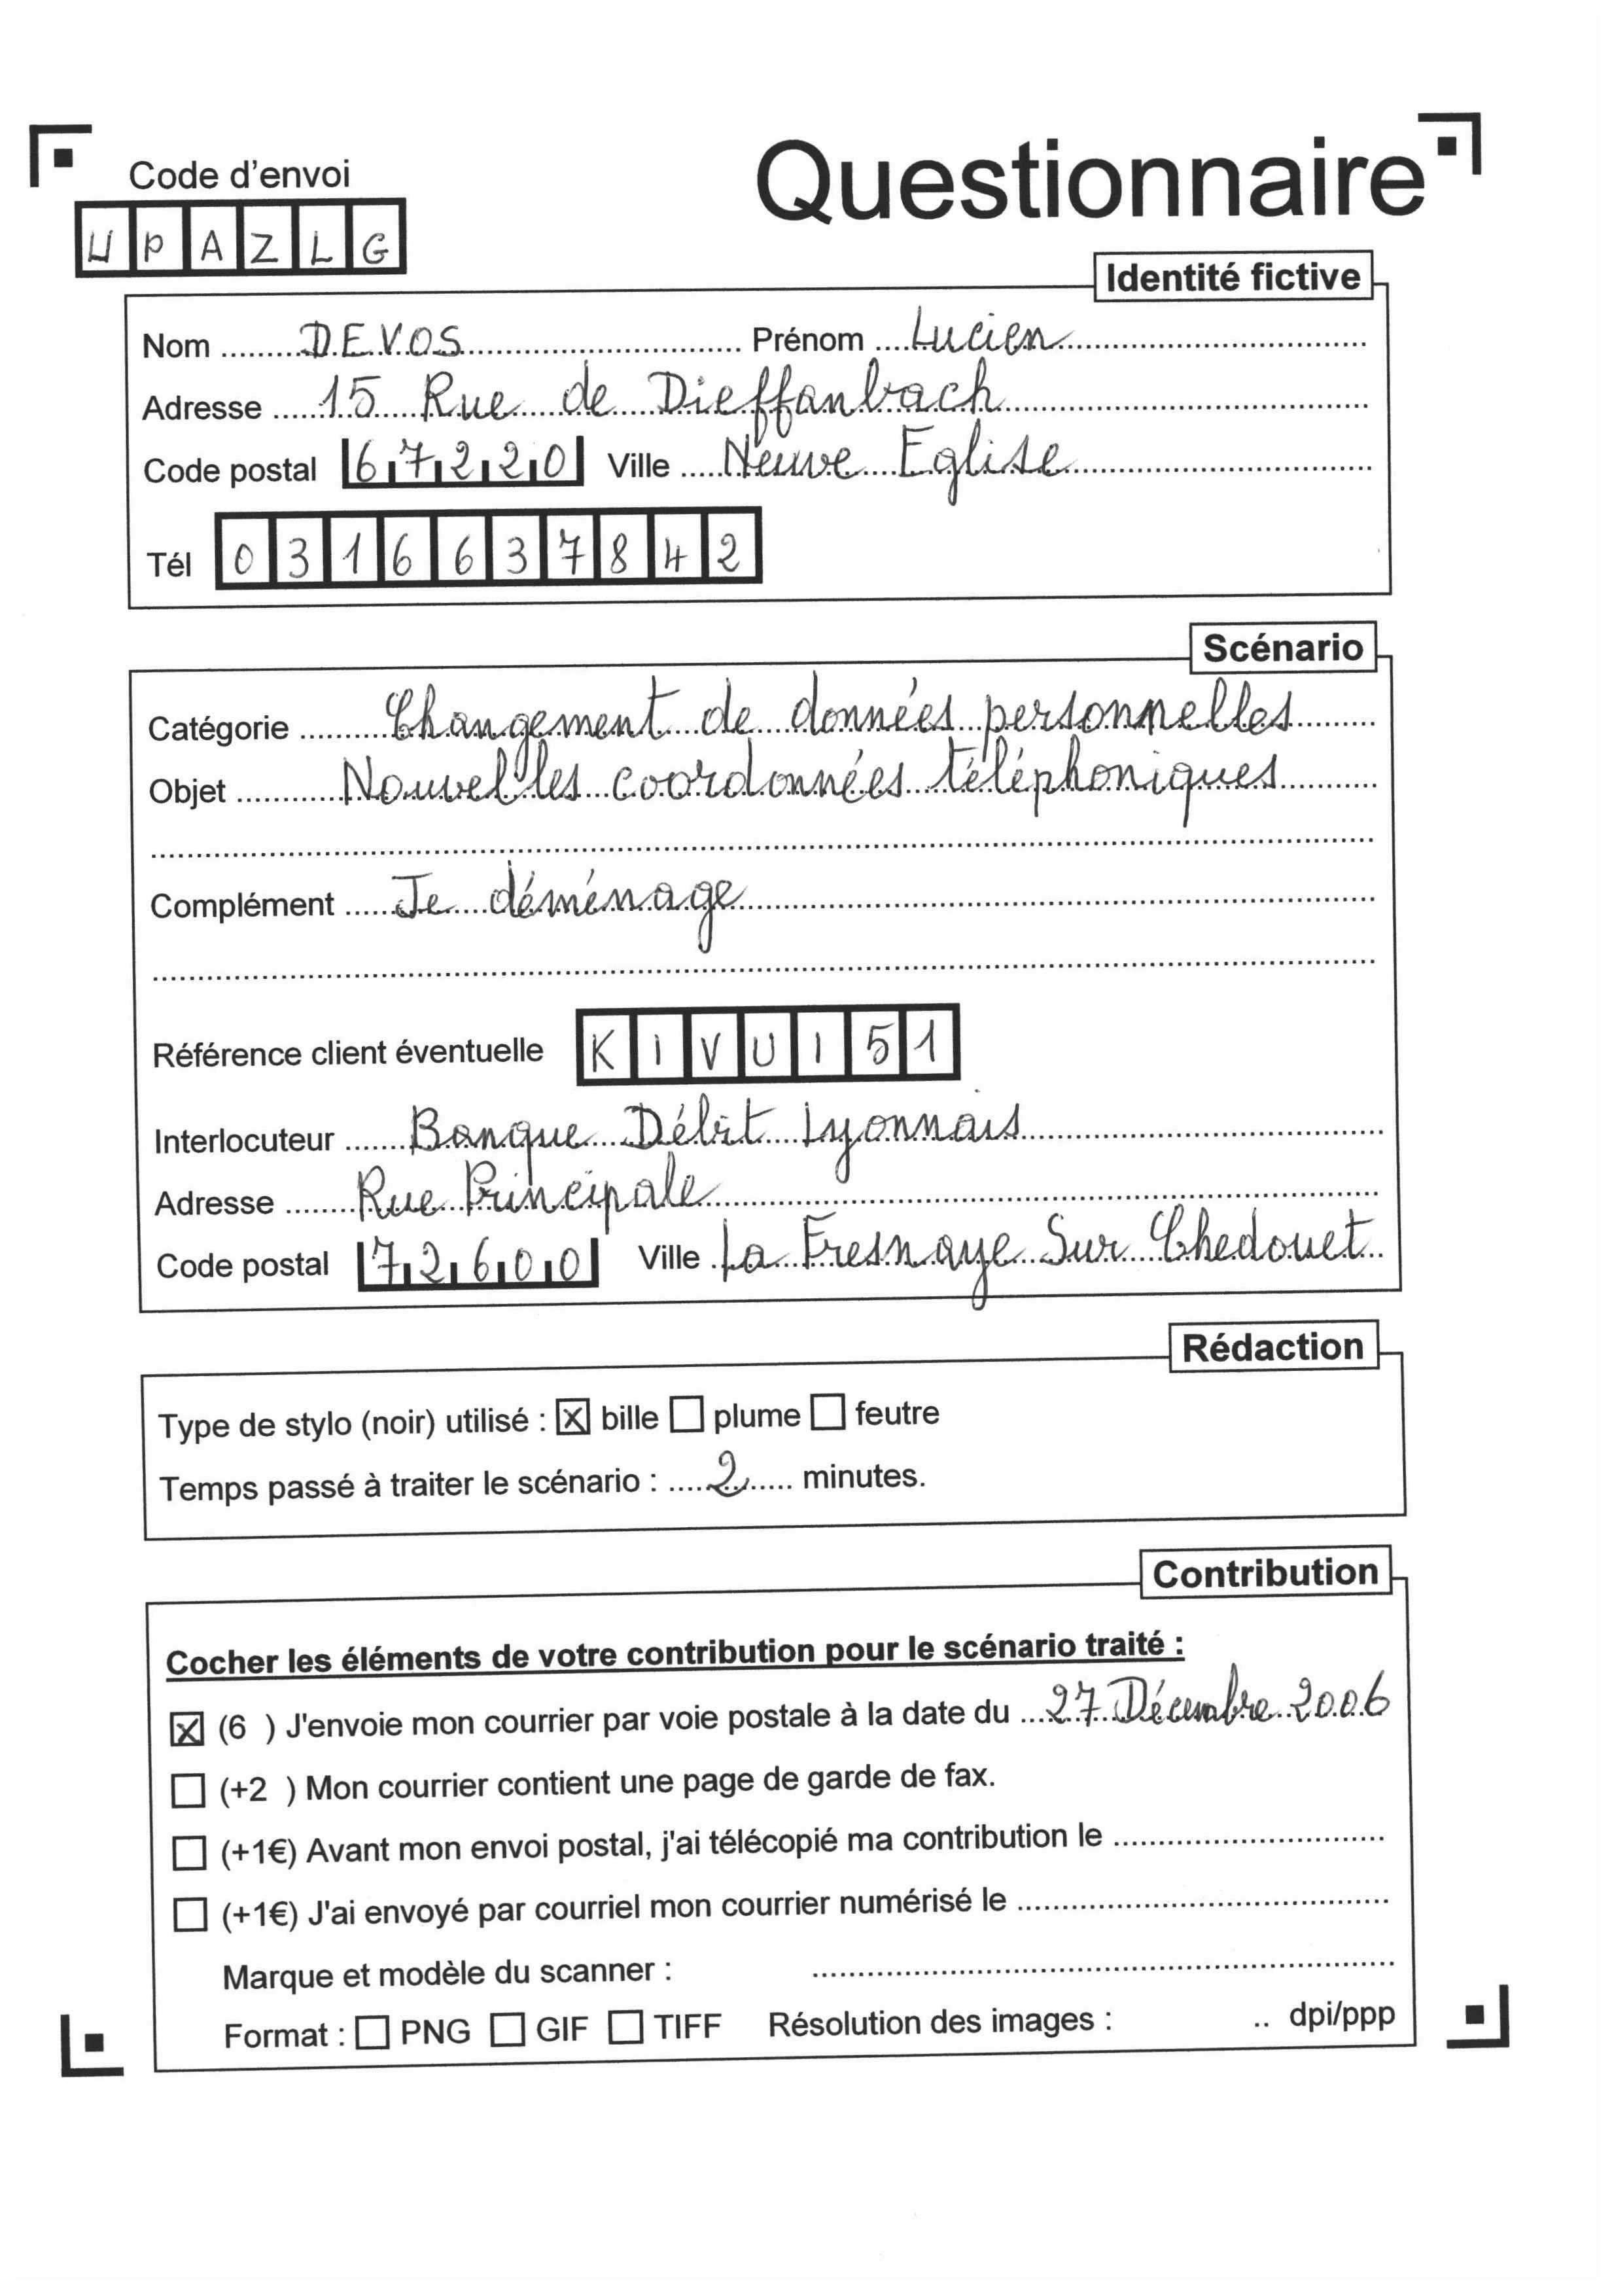 Code d'envoi
Questionnaire
U P A Z L G
Identité fictive
Nom DEVOS Prénom Lucien
Adresse 15 Rue de Dieffanbach
Code postal 67220 Ville Neuve Eglise
Tél 0316637842
Scénario
Catégorie Changement de données personnelles
Objet Nouvelles coordonnées téléphoniques
Complément Je déménage
Référence client éventuelle KIVUI51
Interlocuteur Banque Débit Lyonnais
Adresse Rue Principale
Code postal 72600 Ville La Fresnaye Sur Chedouet
Rédaction
Type de stylo (noir) utilisé : ☒ bille ☐ plume ☐ feutre
Temps passé à traiter le scénario : 2 minutes.
Contribution
Cocher les éléments de votre contribution pour le scénario traité :
☒ (6 ) J'envoie mon courrier par voie postale à la date du 27 Décembre 2006
☐ (+2 ) Mon courrier contient une page de garde de fax.
☐ (+1€) Avant mon envoi postal, j'ai télécopié ma contribution le
☐ (+1€) J'ai envoyé par courriel mon courrier numérisé le
Marque et modèle du scanner :
Format : ☐ PNG ☐ GIF ☐ TIFF Résolution des images : .. dpi/ppp